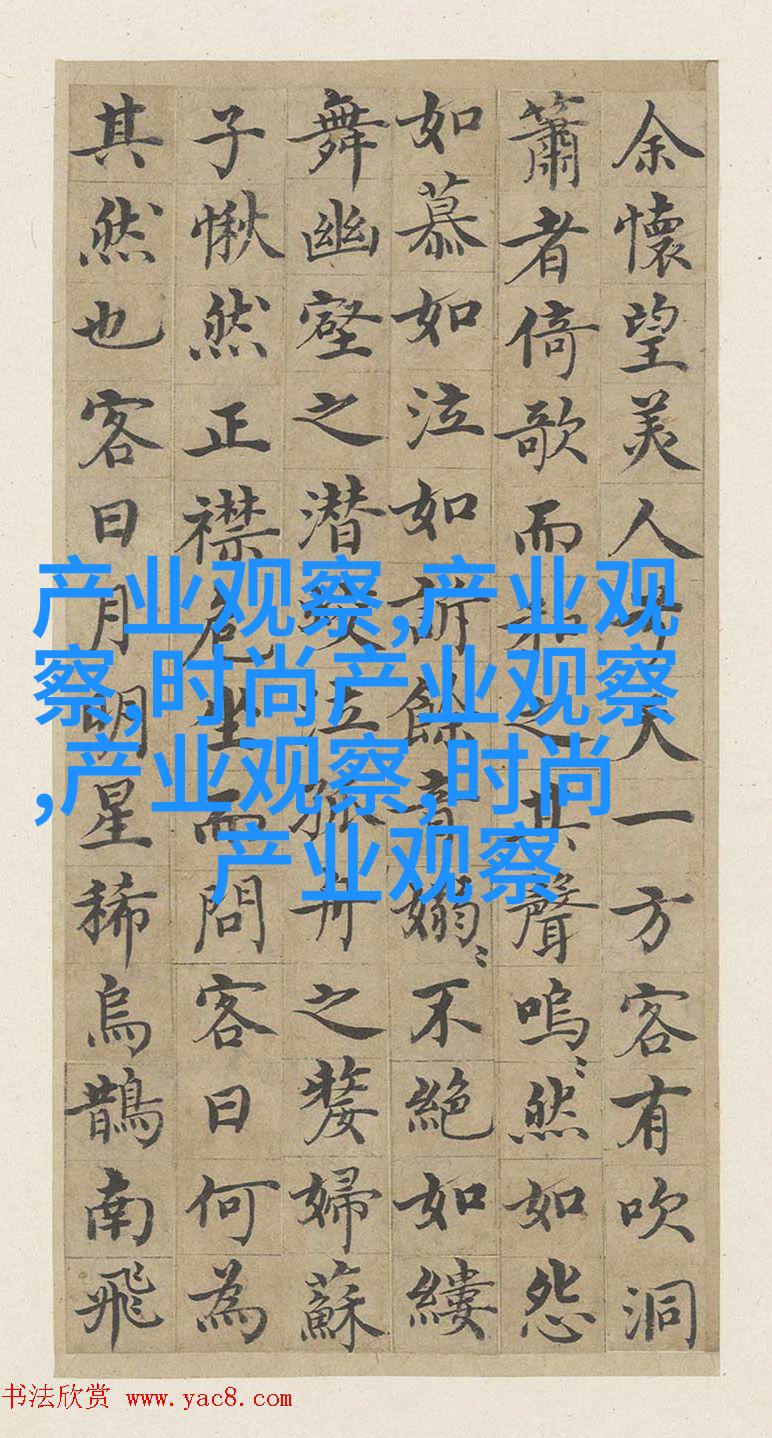 余懷望美人兮天一方客有吹洞
簫者倚歌而和之其聲嗚〻然如怨
如慕如泣如訴餘音嫋〻不絕如縷
舞幽壑之潜蛟泣孤舟之嫠婦蘇
子愀然正襟危坐而問客曰何為
其然也客曰月明星稀烏鵲南飛
产业观察,产业观
察,时尚产业观察
,产业观察,时尚
产业观察
书法欣赏 www.yac8.com